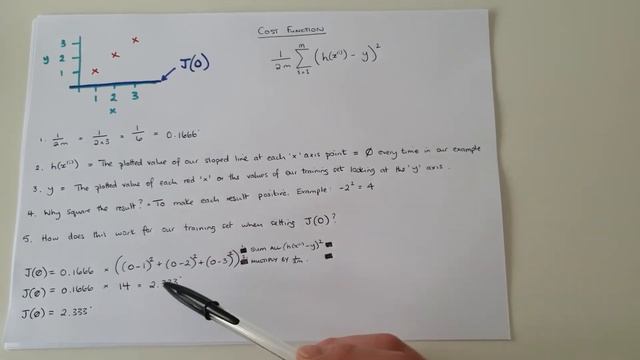 COST FUNCTION
3
y 2
1
J(0)
1 2 3
x
1/2m m Σ i=1 (h(x⁽ⁱ⁾) - y)²
1. 1/2m = 1/2×3 = 1/6 = 0.1666˙
2. h(x⁽ⁱ⁾) = The plotted value of our sloped line at each 'x' axis point = Ø every time in our example
3. y = The plotted value of each red 'x' or the values of our training set looking at the 'y' axis.
4. Why square the result? = To make each result positive. Example: -2² = 4
5. How does this work for our training set when setting J(0)?
J(Ø) = 0.1666 × ((0-1)² + (0-2)² + (0-3)²) SUM ALL (h(x⁽ⁱ⁾)-y)²
MULTIPLY BY 1/2m
J(Ø) = 0.1666 × 14 = 2.333˙
J(Ø) = 2.333˙